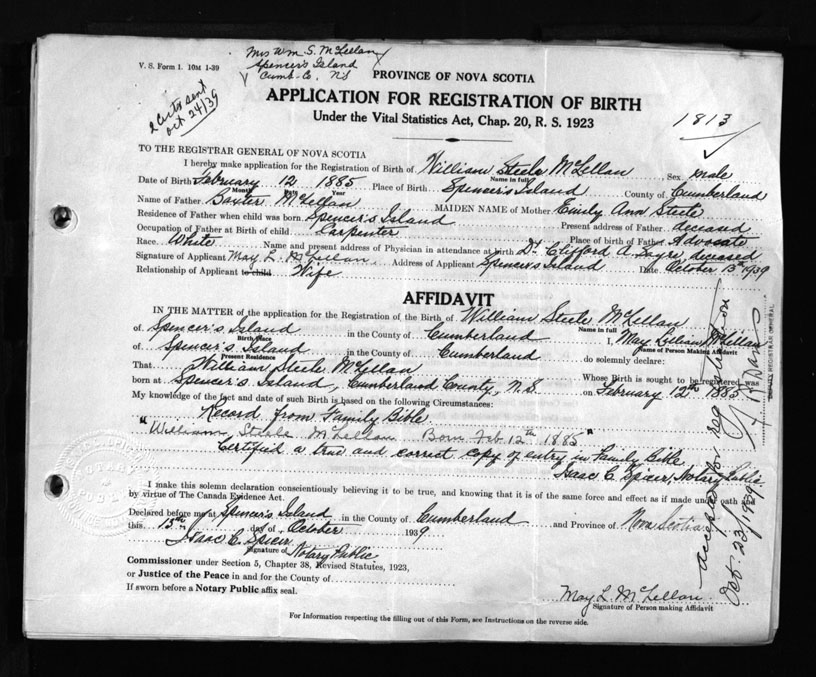 V. S. Form 1. 10M 1-39
Mrs Wm. S. McLellan
Spencer's Island
Cumb. Co. NS
2 Certs sent
Oct 24/39
PROVINCE OF NOVA SCOTIA
APPLICATION FOR REGISTRATION OF BIRTH
Under the Vital Statistics Act, Chap. 20, R. S. 1923
1813
TO THE REGISTRAR GENERAL OF NOVA SCOTIA
I hereby make application for the Registration of Birth of William Steele McLellan, Sex male
Name in full
Date of Birth February 12 1885 Place of Birth Spencer's Island County of Cumberland
Month Date Year
Name of Father Baxter McLellan MAIDEN NAME of Mother Emily Ann Steele
Residence of Father when child was born Spencer's Island Present address of Father deceased
Occupation of Father at Birth of child Carpenter Place of birth of Father Advocate
Race White Name and present address of Physician in attendance at birth Dr. Clifford A. deceased
Signature of Applicant May L. McLellan, Address of Applicant Spencer's Island Date October 13 1939
Relationship of Applicant to child Wife
AFFIDAVIT
IN THE MATTER of the application of the Registration of the Birth of William Steele McLellan
Name in full
of Spencer's Island in the County of Cumberland I, May Lillian McLellan
Birth Place Name of Person Making Affidavit
of Spencer's Island in the County of Cumberland do solemnly declare:
Present Residence
That William Steele McLellan Whose Birth is sought to be registered was
born at Spencer's Island, Cumberland County, N.S. on February 12th 1885
My knowledge of the fact and date of such Birth is based on the following Circumstances:
Record from Family Bible
"William Steele McLellan Born Feb 12th 1885"
Certified a true and correct copy of entry in Family Bible
Isaac C. Spicer, Notary Public
I make this solemn declaration conscientiously believing it to be true, and knowing that it is of the same force and effect as if made under oath and
by virtue of The Canada Evidence Act.
Declared before me at Spencer's Island in the County of Cumberland and Province of Nova Scotia
this 13th day of October 1939
Isaac C. Spicer
Signature of Notary Public
Commissioner under Section 5, Chapter 38, Revised Statutes, 1923,
or Justice of the Peace in and for the County of
If sworn before a Notary Public affix seal.
May L. McLellan
Signature of Person making Affidavit
For Information respecting the filling out of this Form, see Instructions on the reverse side.
accepted for registration on
Oct. 23/1939
DEPUTY REGISTRAR GENERAL